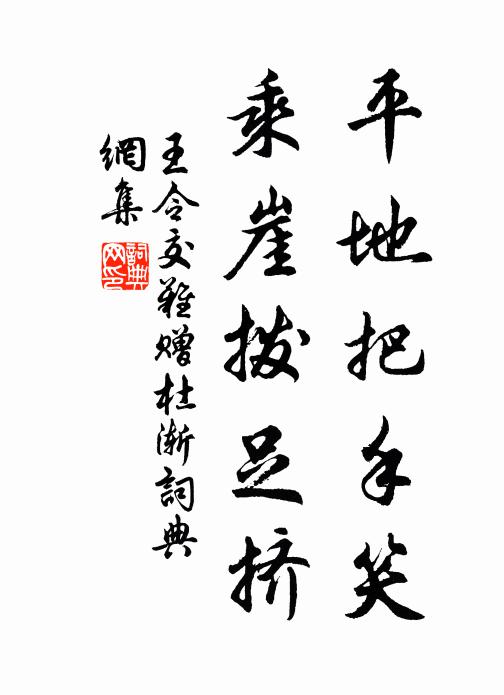 平地把手笑
乘崖拨足挤
王令交难赠杜渐词典
網集
詞典
网印